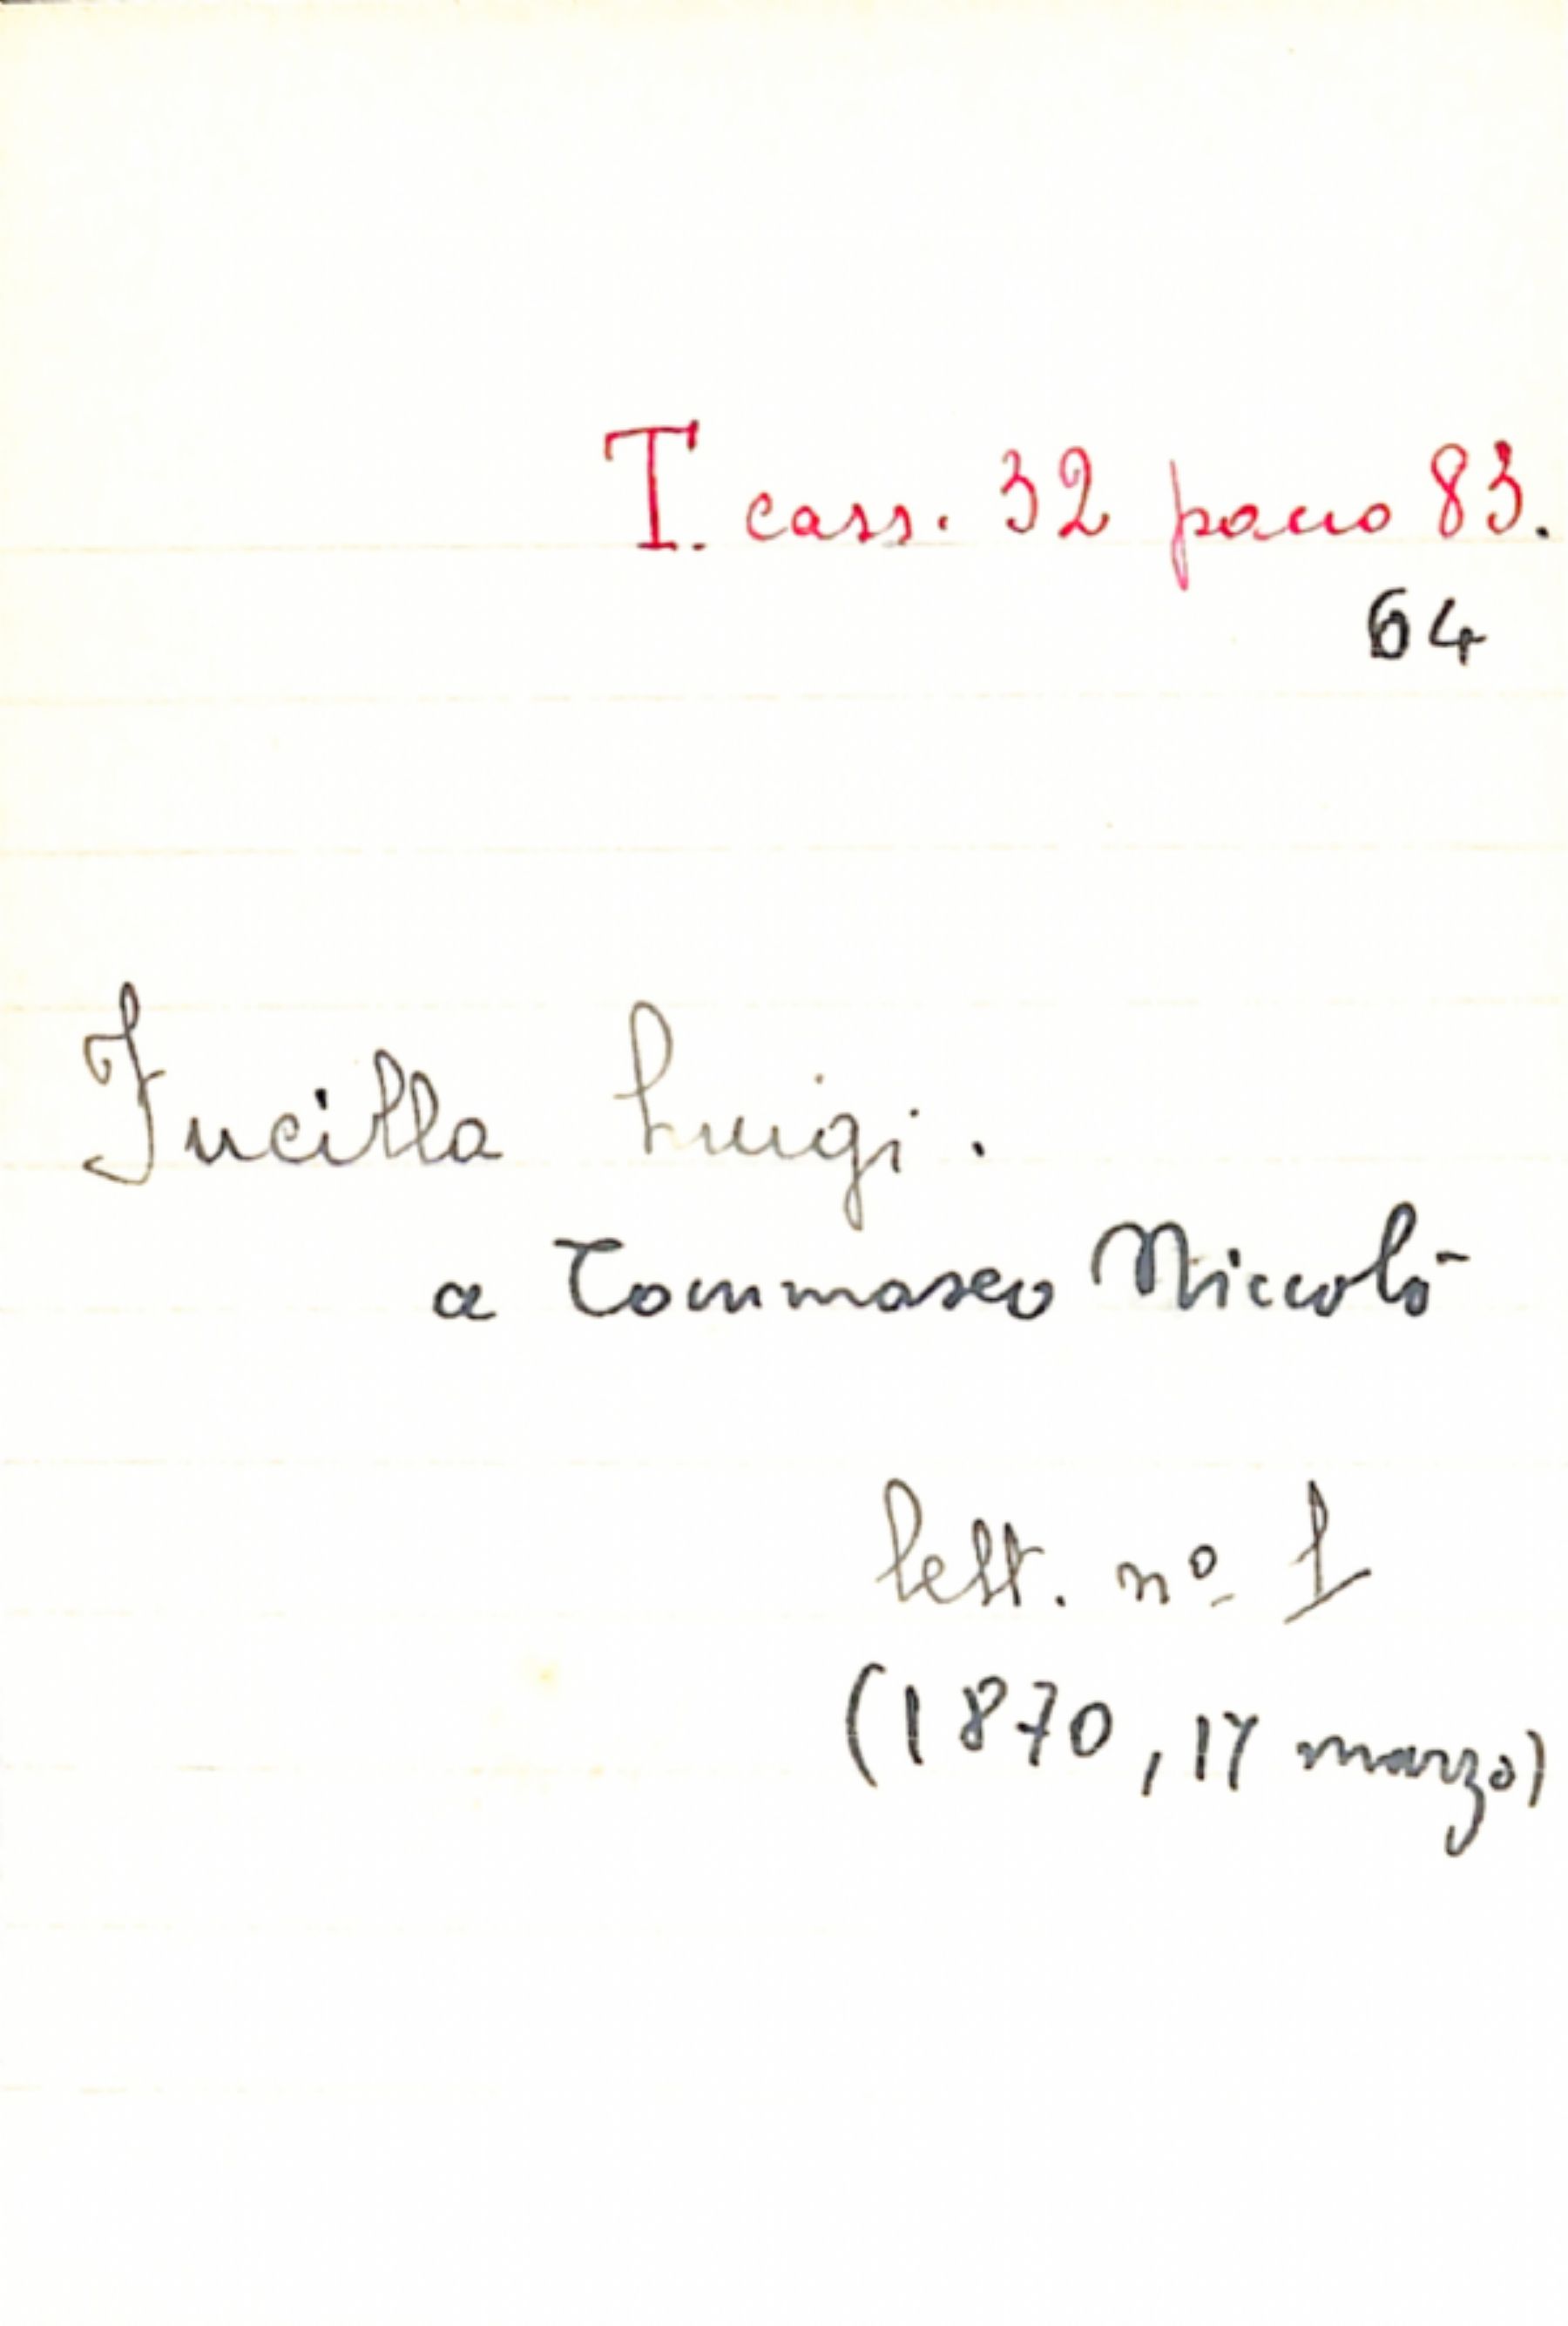 T. cass. 32 pacco 83.
64
Fucilla Luigi.
a Tommaseo Niccolò
lett. nº 1
(1870, 17 marzo)